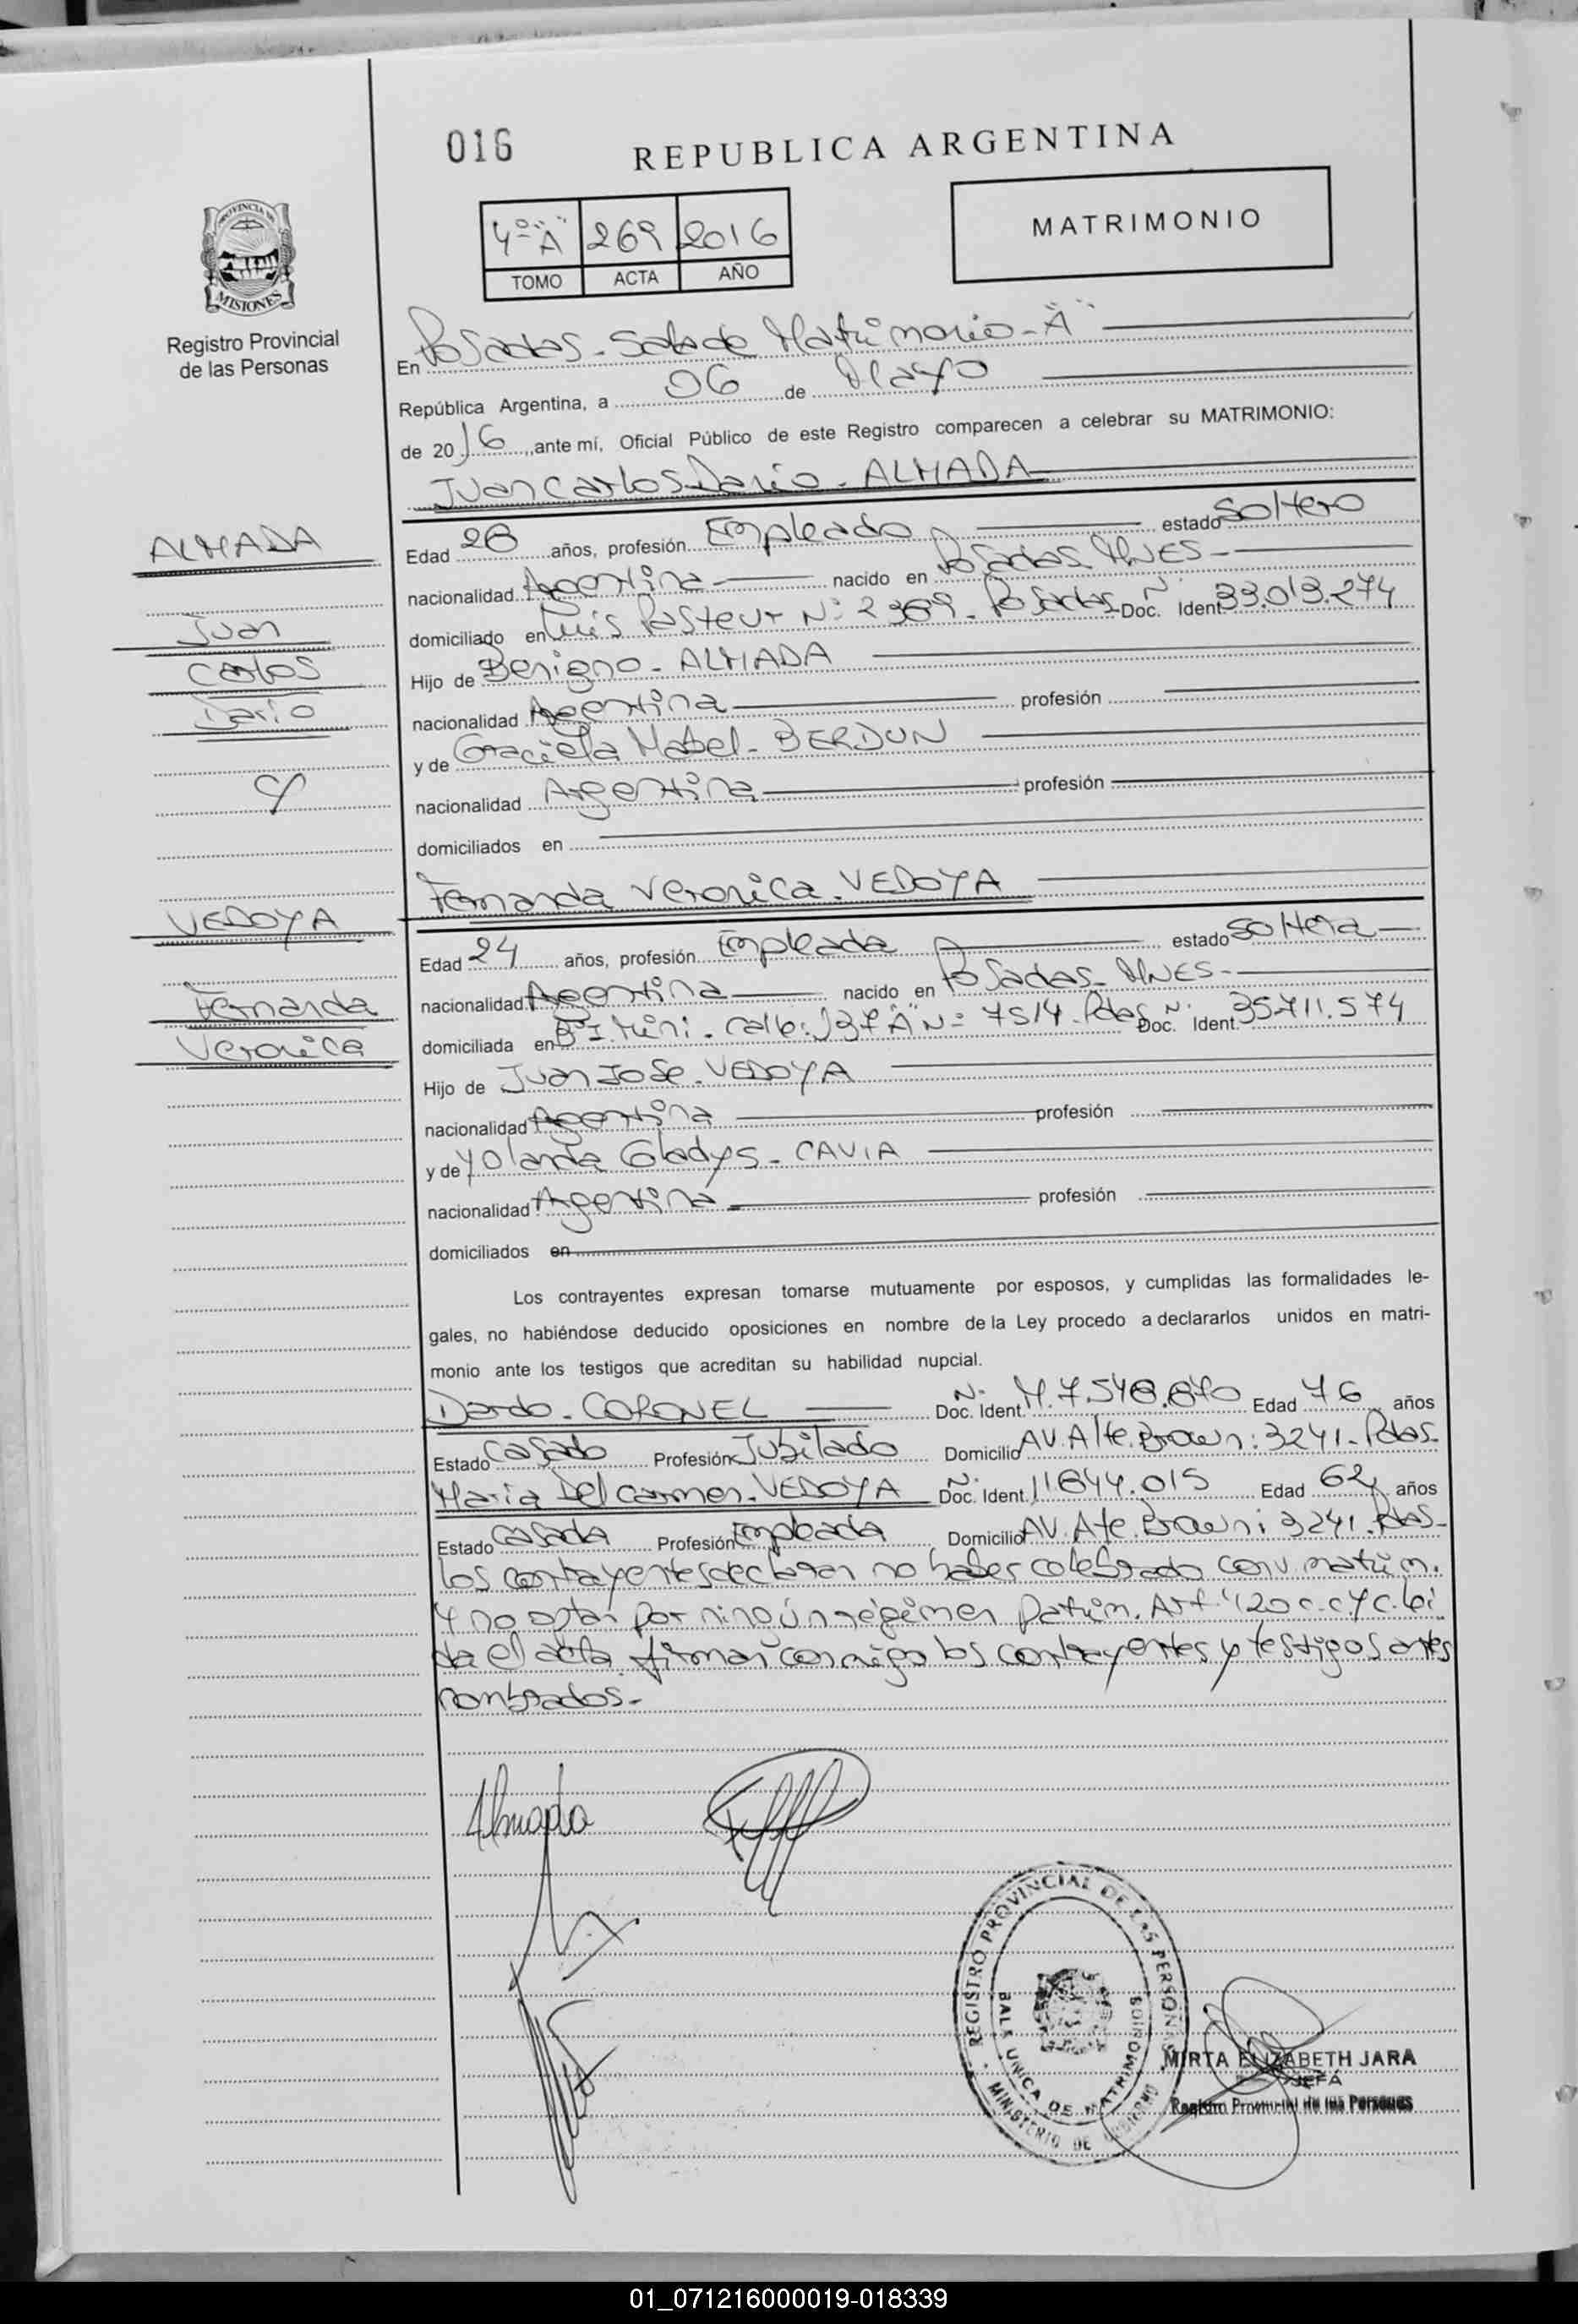 016
REPUBLICA ARGENTINA
4º "A" 269 2016
TOMO ACTA AÑO
MATRIMONIO
PROVINCIA DE
MISIONES
Registro Provincial
de las Personas
En Posadas - Sala de Matrimonio - "A"
República Argentina, a 06 de Mayo
de 2016, ante mí, Oficial Público de este Registro comparecen a celebrar su MATRIMONIO:
Juan Carlos Dario - ALMADA
ALMADA
Juan
Carlos
Dario
Edad 28 años, profesión Empleado estado Soltero
nacionalidad Argentina nacido en Posadas Mnes -
domiciliado en Luis Pasteur Nº 2369 - Posadas Doc. Ident. Nº 33.013.274
Hijo de Benigno - ALMADA
nacionalidad Argentina profesión
y de Graciela Mabel - BERDUN
nacionalidad Argentina profesión
domiciliados en
y
Fernanda Veronica - VEDOYA
VEDOYA
Fernanda
Veronica
Edad 24 años, profesión Empleada estado Soltera
nacionalidad Argentina nacido en Posadas - Mnes -
domiciliada en Bº I. Mini - calle: 137 "A" Nº 7514 - Pdas Doc. Ident. Nº 35.711.574
Hijo de Juan Jose - VEDOYA
nacionalidad Argentina profesión
y de Yolanda Gladys - CAVIA
nacionalidad Argentina profesión
domiciliados en
Los contrayentes expresan tomarse mutuamente por esposos, y cumplidas las formalidades le-
gales, no habiéndose deducido oposiciones en nombre de la Ley procedo a declararlos unidos en matri-
monio ante los testigos que acreditan su habilidad nupcial.
Dardo - CORONEL Doc. Ident. Nº M. 7.548.870 Edad 76 años
Estado Casado Profesión Jubilado Domicilio AV. Alte. Brown: 3241 - Pdas.
Maria Del Carmen - VEDOYA Doc. Ident. Nº 11644.015 Edad 62 años
Estado Casada Profesión Empleada Domicilio AV. Ate. Brown: 3241. Pdas -
los contrayentes declaran no haber celebrado conv. matrim.
y no optar por ningún régimen Patrim. Art. 420 c.c y c. lei
da el acta firman conmigo los contrayentes y testigos antes
nombrados -
Almada
REGISTRO PROVINCIAL DE LAS PERSONAS
MINISTERIO DE GOBIERNO
SALA UNICA DE MATRIMONIOS
MIRTA ELIZABETH JARA
JEFA
Registro Provincial de las Personas
01_071216000019-018339